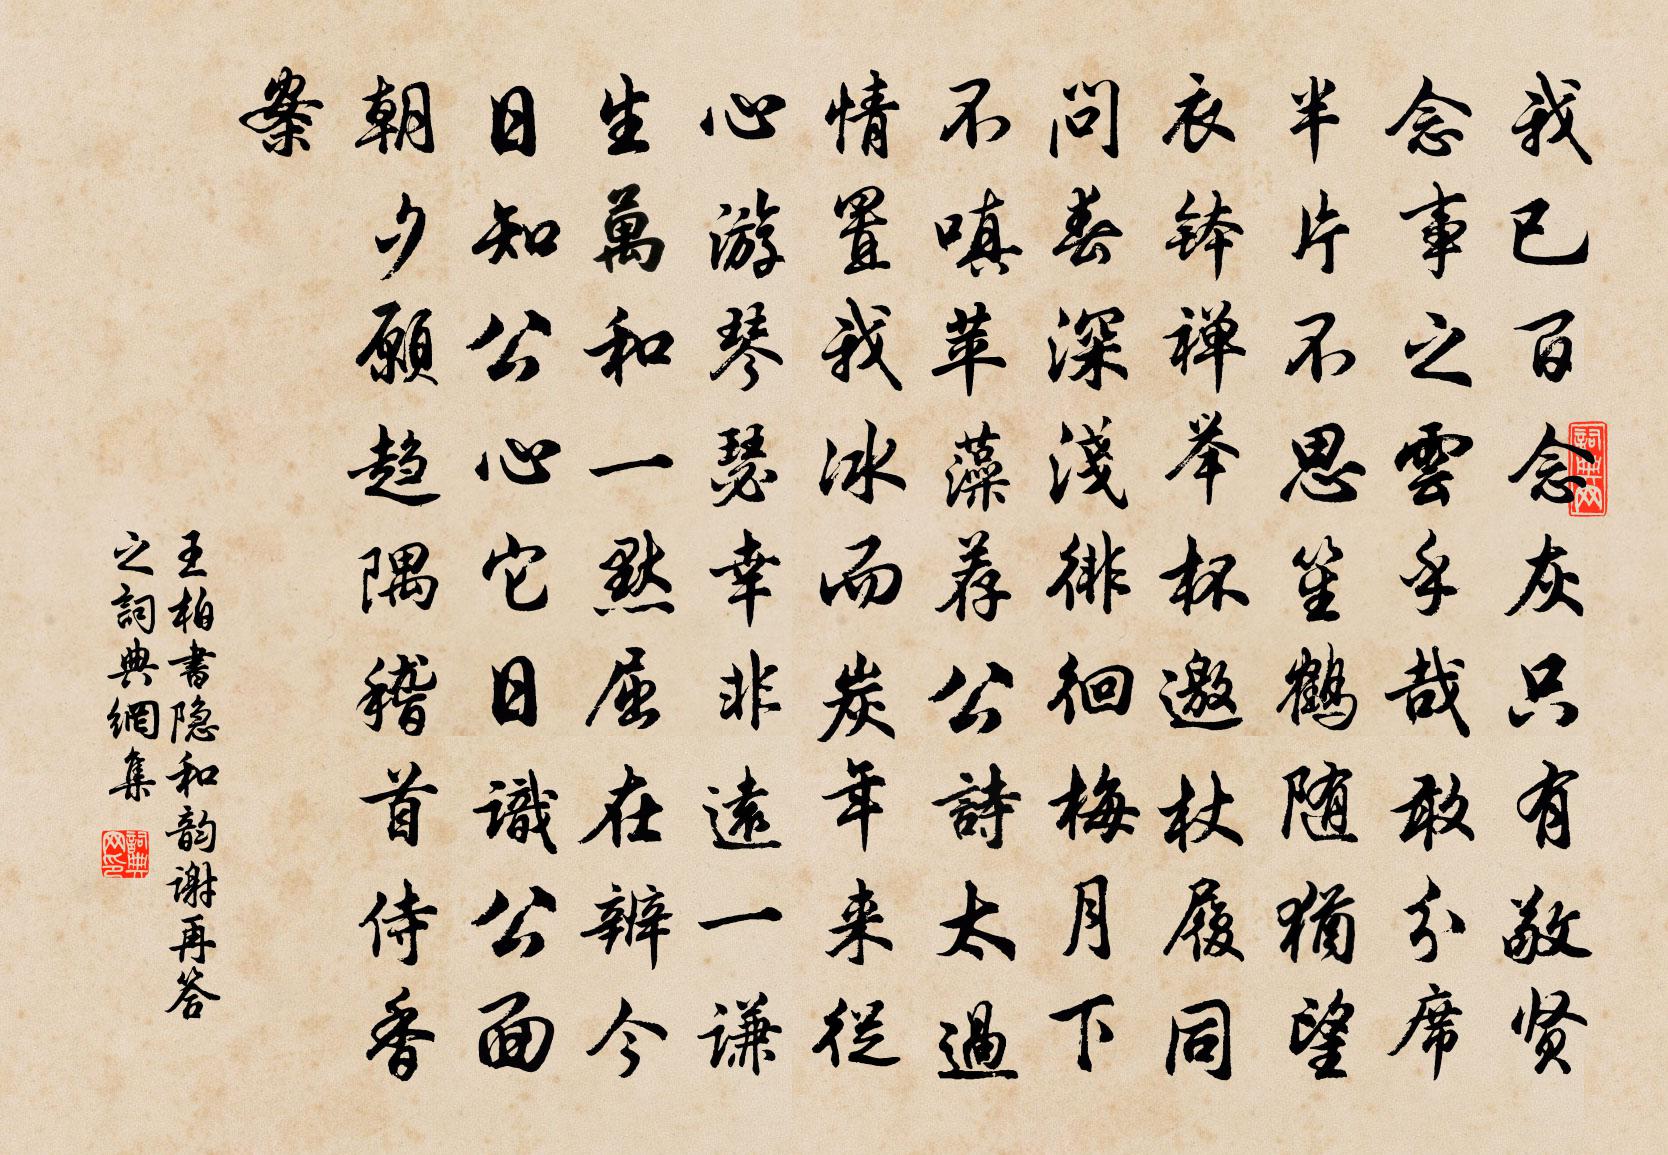 我已百念灰只有敬贤
念事之雲乎哉敢分席
半片不思笙鶴随犹望
衣钵禅举杯邀杖履同
問春深淺徘徊梅月下
不嗔苹藻荐公詩太過
情置我冰而炭年来従
心游琴瑟幸非遠一谦
生萬和一點屈在辨今
日知公心它日識公面
朝夕願趋隅稽首侍香
案
王柏書隐和韵谢再答
之詞典網集
詞典网
詞典网印